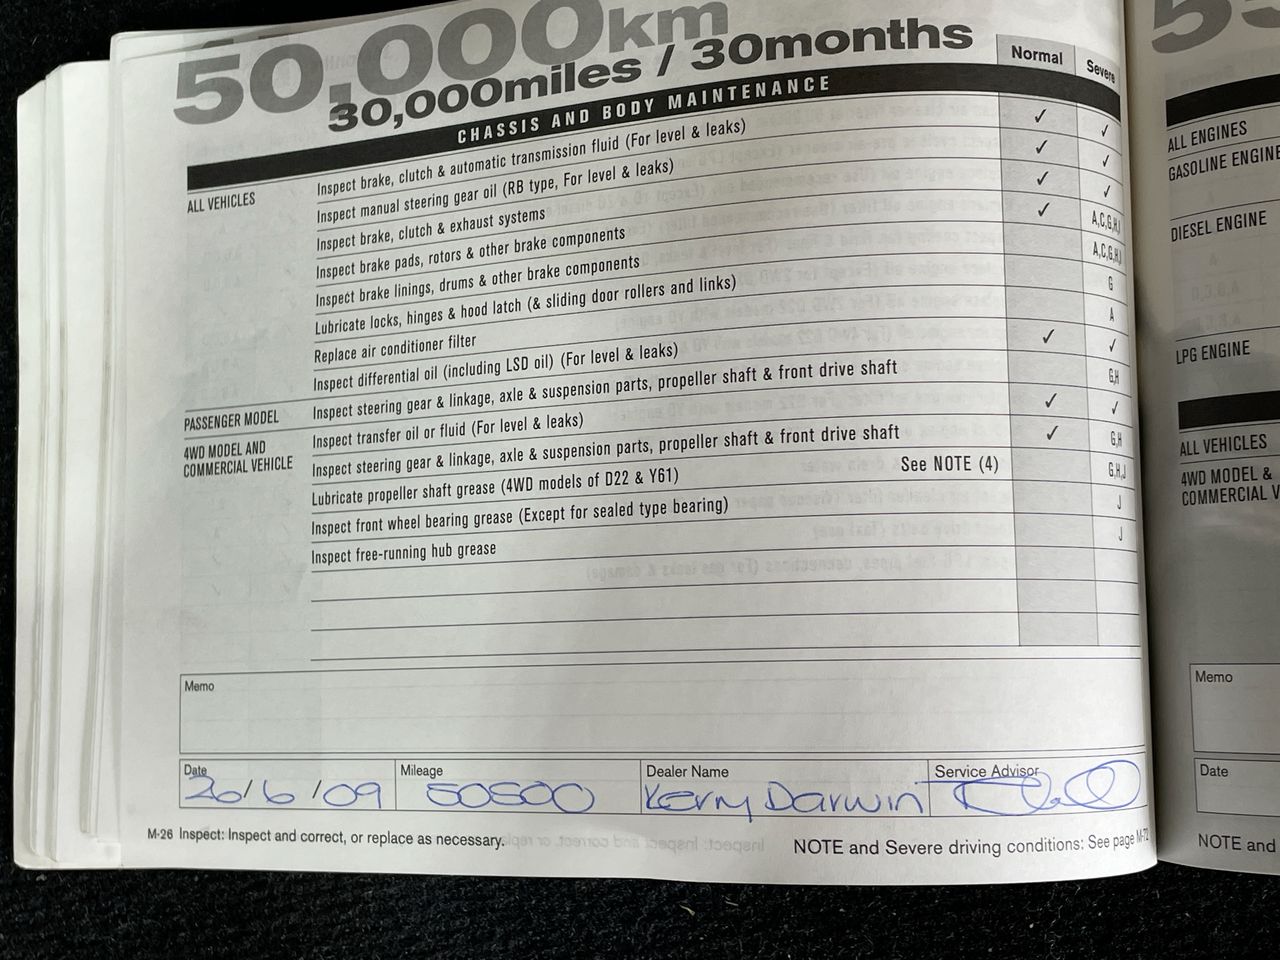 50,000km
30,000miles / 30months
Normal Severe
CHASSIS AND BODY MAINTENANCE
ALL VEHICLES Inspect brake, clutch & automatic transmission fluid (For level & leaks) ✓ ✓
Inspect manual steering gear oil (RB type, For level & leaks) ✓ ✓
Inspect brake, clutch & exhaust systems ✓ ✓
Inspect brake pads, rotors & other brake components ✓ A,C,G,H,J
Inspect brake linings, drums & other brake components A,C,G,H,J
Lubricate locks, hinges & hood latch (& sliding door rollers and links) G
Replace air conditioner filter A
Inspect differential oil (including LSD oil) (For level & leaks) ✓ ✓
PASSENGER MODEL Inspect steering gear & linkage, axle & suspension parts, propeller shaft & front drive shaft G,H
4WD MODEL AND Inspect transfer oil or fluid (For level & leaks) ✓ ✓
COMMERCIAL VEHICLE Inspect steering gear & linkage, axle & suspension parts, propeller shaft & front drive shaft ✓ G,H
Lubricate propeller shaft grease (4WD models of D22 & Y61) See NOTE (4) G,H,J
Inspect front wheel bearing grease (Except for sealed type bearing) J
Inspect free-running hub grease J
Memo
Date Mileage Dealer Name Service Advisor
20/6/09 50500 Kerry Darwin
M-26 Inspect: Inspect and correct, or replace as necessary.
NOTE and Severe driving conditions: See page M-72
ALL ENGINES
GASOLINE ENGINE
DIESEL ENGINE
LPG ENGINE
ALL VEHICLES
4WD MODEL &
COMMERCIAL V
Memo
Date
NOTE and